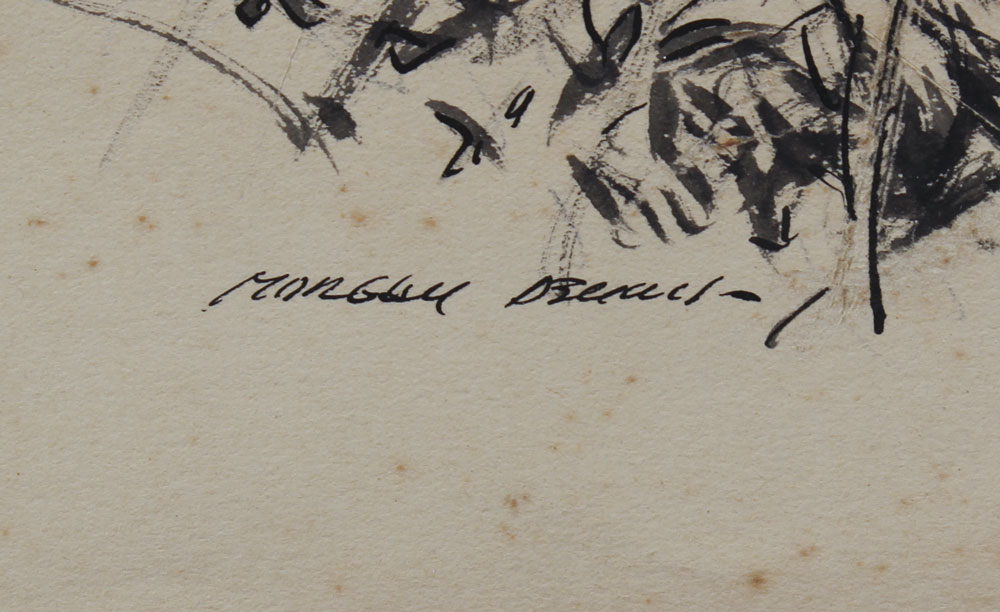 MORGAN DENNIS